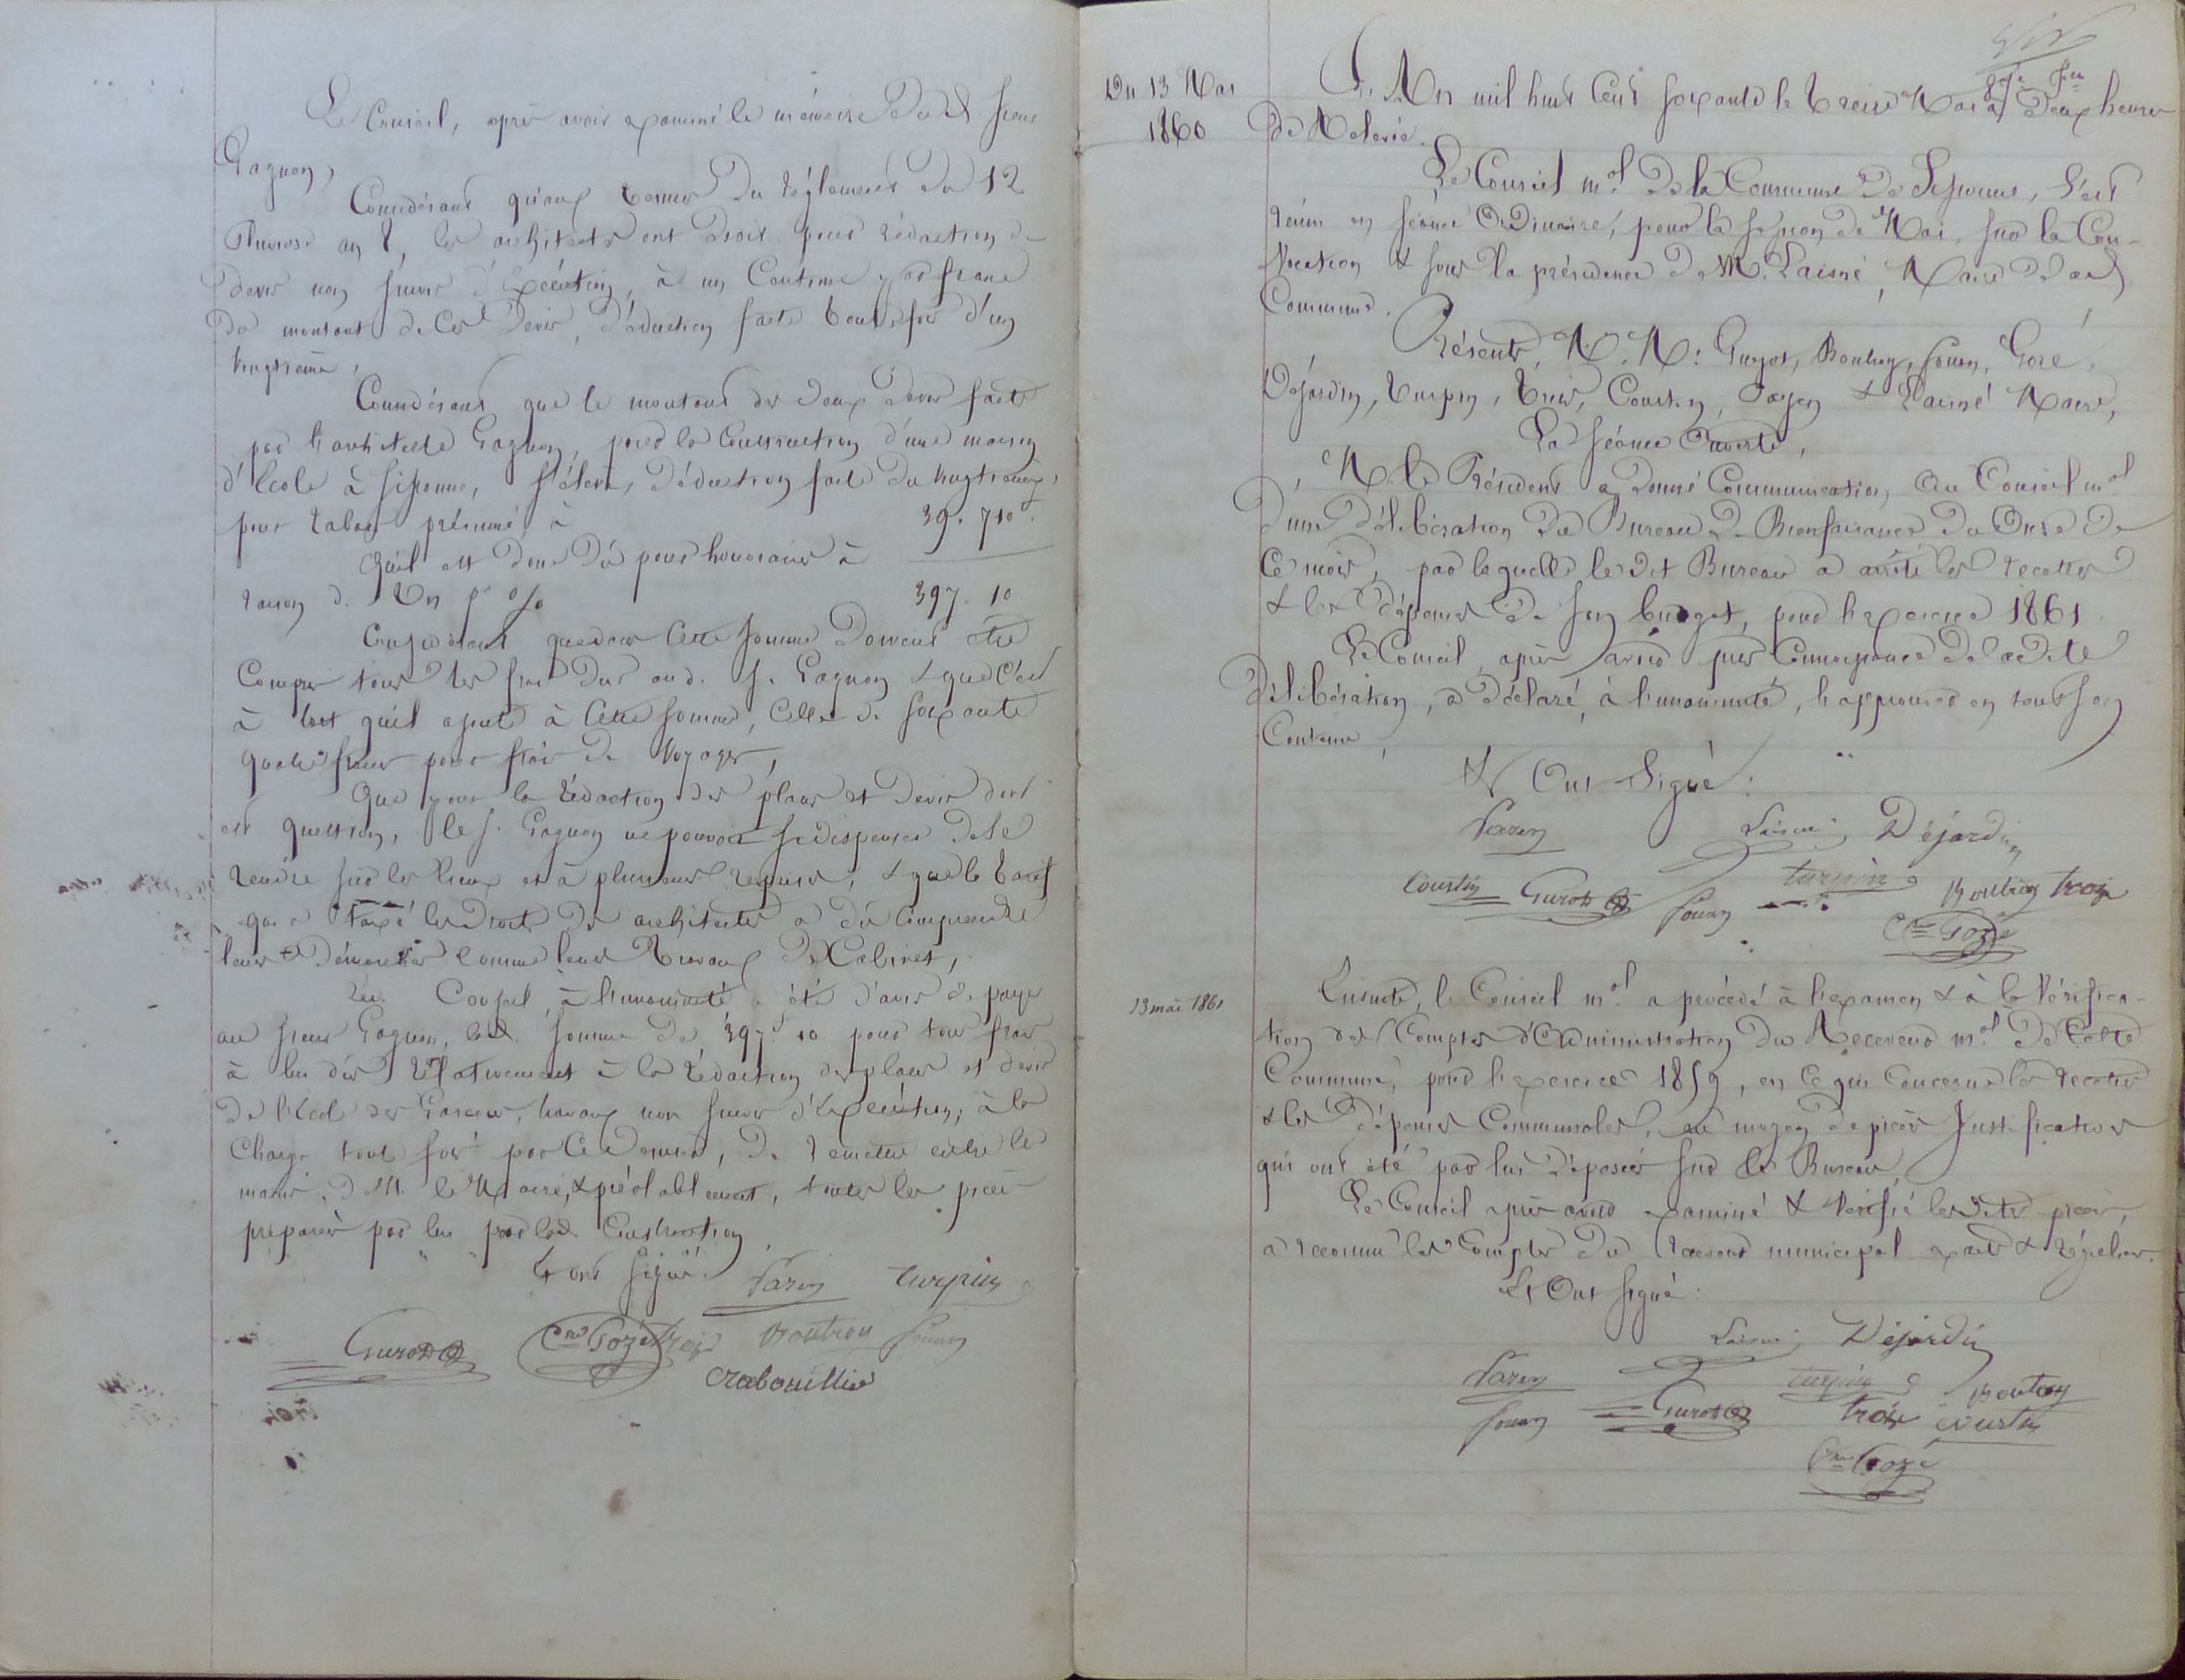 Le Conseil, après avoir examiné le mémoire dud. sieur
Gagnon,
Considérant qu'aux termes du réglement du 12
Pluviose an 8, les architectes ont droit pour rédaction de
devis non suivis d'Exécution, à un Centime par franc
du montant de ces Devis, déduction faite toutefois d'un
vingtième,
Considérant que le montant des deux devis faits
par l'architecte Gagnon, pour la Construction d'une maison
d'Ecole à Sissonne, s'élève, déduction faite du vingtième,
pour rabais présumé à 39.710f.
Qu'il est donc dû pour honoraires à
raison de Un p% 397.10
Considérant que dans cette somme doivent être
Compris tous les frais dus aud. S. Gagnon & que c'est
à tort qu'il ajoute à Cette somme, Celle de soixante
quatre francs pour frais de Voyages,
Que pour la rédaction des plans et devis dont
est question, le S. Gagnon ne pouvait se dispenser de se
rendre sur les lieux et à plusieurs reprises, & que le tarif
qui a taxé les droits des architectes a dû comprendre
leurs démarches comme leurs travaux de Cabinet,
Le Conseil, à l'unanimité a été d'avis de payer
au sieur Gagnon, lad. somme de 397f 10 pour tous frais
à lui dûs relativement à la rédaction des plans et devis
de l'Ecole des Garçons, travaux non suivis d'Exécution, à la
Charge toutefois par ce dernier, de remettre entre les
mains de M. le Maire, & préalablement, toutes les pièces
préparées par lui pour lad. Construction
Et ont signé.
Payen turpin
Guyot Cne Gozé troiz Boutroy fouan
Crabouillié
Du 13 Mai
1860
L'An mil huit Cent soixante le treize Mai à deux heures
de Relevée.
Le Conseil mal. de la Commune de Sissonne, s'est
réuni en séance Ordinaire, pour la session de Mai, sur la Con-
vocation & sous la présidence de M. Laisné, Maire de lad.
Commune.
Présents, M.M: Guyot, Boutroy, fouan, Gozé,
Déjardin, Turpin, Courtin, Payen & Laisné Maire,
La séance Ouverte,
M. le Président a donné Communication, au Conseil mal
d'une délibération du Bureau de Bienfaisance du Onze de
Ce mois, par laquelle ledit Bureau a arrêté les recettes
& les dépenses de son budget, pour l'exercice 1861.
Le Conseil, après avoir pris Connaissance de ladite
délibération, a déclaré, à l'unanimité, l'approuver en tout son
Contenu,
Et Ont Signé:
Payen Laisné Déjardin
Courtin Guyot fouan turpin Boutroy troiz
Cne Gozé
13 mai 1861
Ensuite, le Conseil mal. a procédé à l'examen & à la Vérifica-
tion des Comptes d'Administration du Receveur mal. de Cette
Commune, pour l'exercice 1859, en Ce qui Concerne les recettes
& les dépenses Communales, au moyen de pièces Justificatives
qui ont été par lui déposées sur le Bureau,
Le Conseil après avoir examiné & Vérifié lesdites pièces,
a reconnu les Comptes du receveur municipal exacts & réguliers.
Et Ont signé:
Laisné Déjardin
Payen turpin Boutroy
fouan Guyot troiz courtin
Cne Gozé